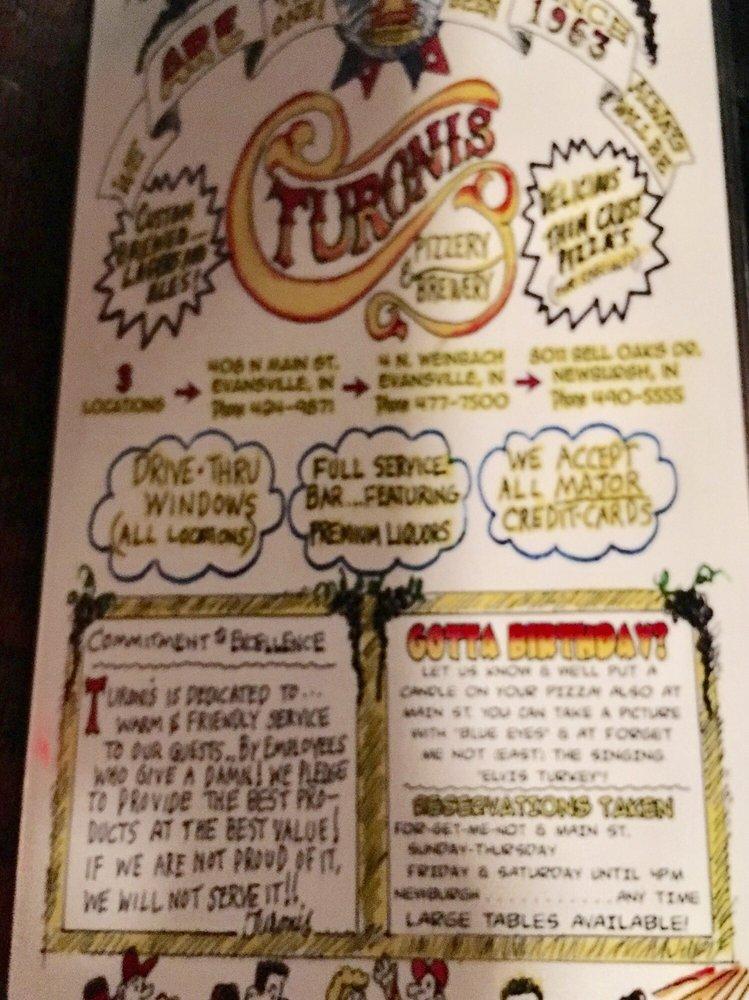 ARE
SINCE
1963
ALWAYS
WILL BE
TURONIS
PIZZERY
& BREWERY
CUSTOM
BREWED...
LAGERS AND
ALES!
DELICIOUS
THIN CRUST
PIZZA'S
3
LOCATIONS
408 N MAIN ST.
EVANSVILLE, IN
Phone 424-9871
4 N. WEINBACH
EVANSVILLE, IN
Phone 477-7500
8011 BELL OAKS DR.
NEWBURGH, IN
Phone 490-5555
DRIVE-THRU
WINDOWS
(ALL LOCATIONS)
FULL SERVICE
BAR...FEATURING
PREMIUM LIQUORS
WE ACCEPT
ALL MAJOR
CREDIT-CARDS
COMMITMENT TO EXCELLENCE
TURONI'S IS DEDICATED TO...
WARM & FRIENDLY SERVICE
TO OUR GUESTS.. BY EMPLOYEES
WHO GIVE A DAMN! WE PLEDGE
TO PROVIDE THE BEST PRO-
DUCTS AT THE BEST VALUE!
IF WE ARE NOT PROUD OF IT,
WE WILL NOT SERVE IT!!
Turonis
GOTTA BIRTHDAY?
LET US KNOW & WE'LL PUT A
CANDLE ON YOUR PIZZA! ALSO AT
MAIN ST. YOU CAN TAKE A PICTURE
WITH "BLUE EYES" & AT FORGET
ME NOT (EAST) THE SINGING
"ELVIS TURKEY"!
RESERVATIONS TAKEN
FOR-GET-ME-NOT & MAIN ST.
SUNDAY-THURSDAY
FRIDAY & SATURDAY UNTIL 4PM
NEWBURGH.............ANY TIME
LARGE TABLES AVAILABLE!